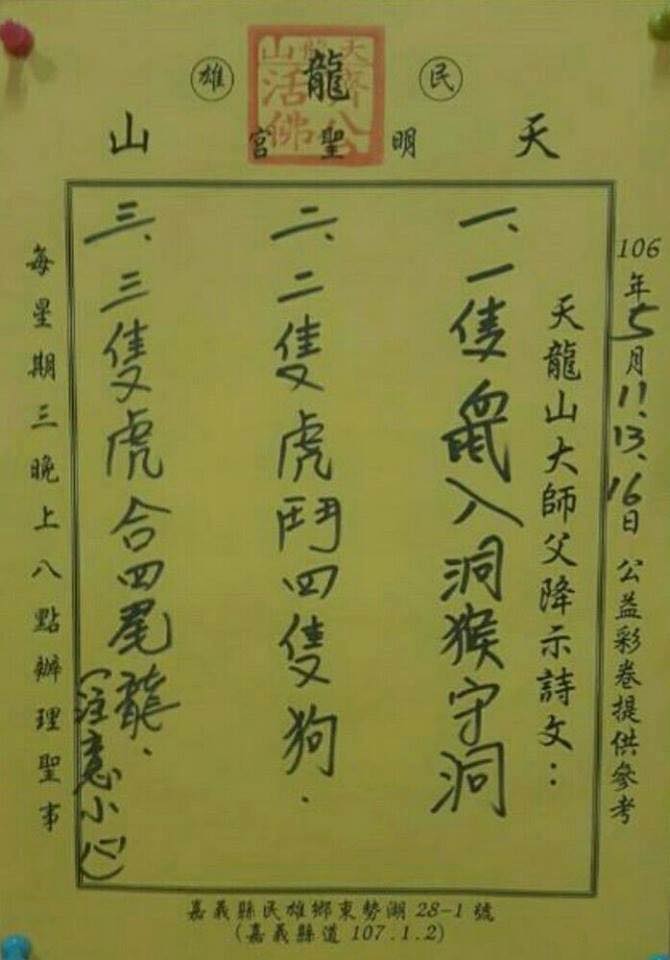 民 雄
天 龍 山
明 聖 宮
天龍山
濟公
活佛
106年5月11.13.16日 公益彩卷提供參考
天龍山大師父降示詩文：
一、一隻鼠入洞猴守洞
二、二隻虎鬥四隻狗.
三、三隻虎合四尾龍.
(注意小心)
每星期三晚上八點辦理聖事
嘉義縣民雄鄉東勢湖 28-1 號
(嘉義縣道 107.1.2)